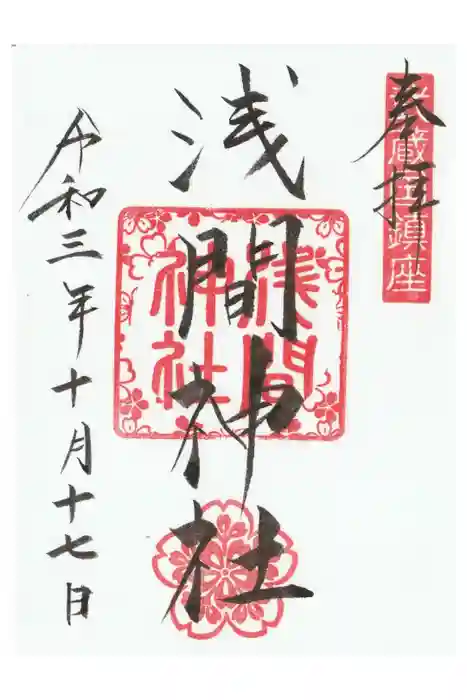 奉拝
武蔵國鎮座
浅間神社
浅間神社
令和三年十月十七日